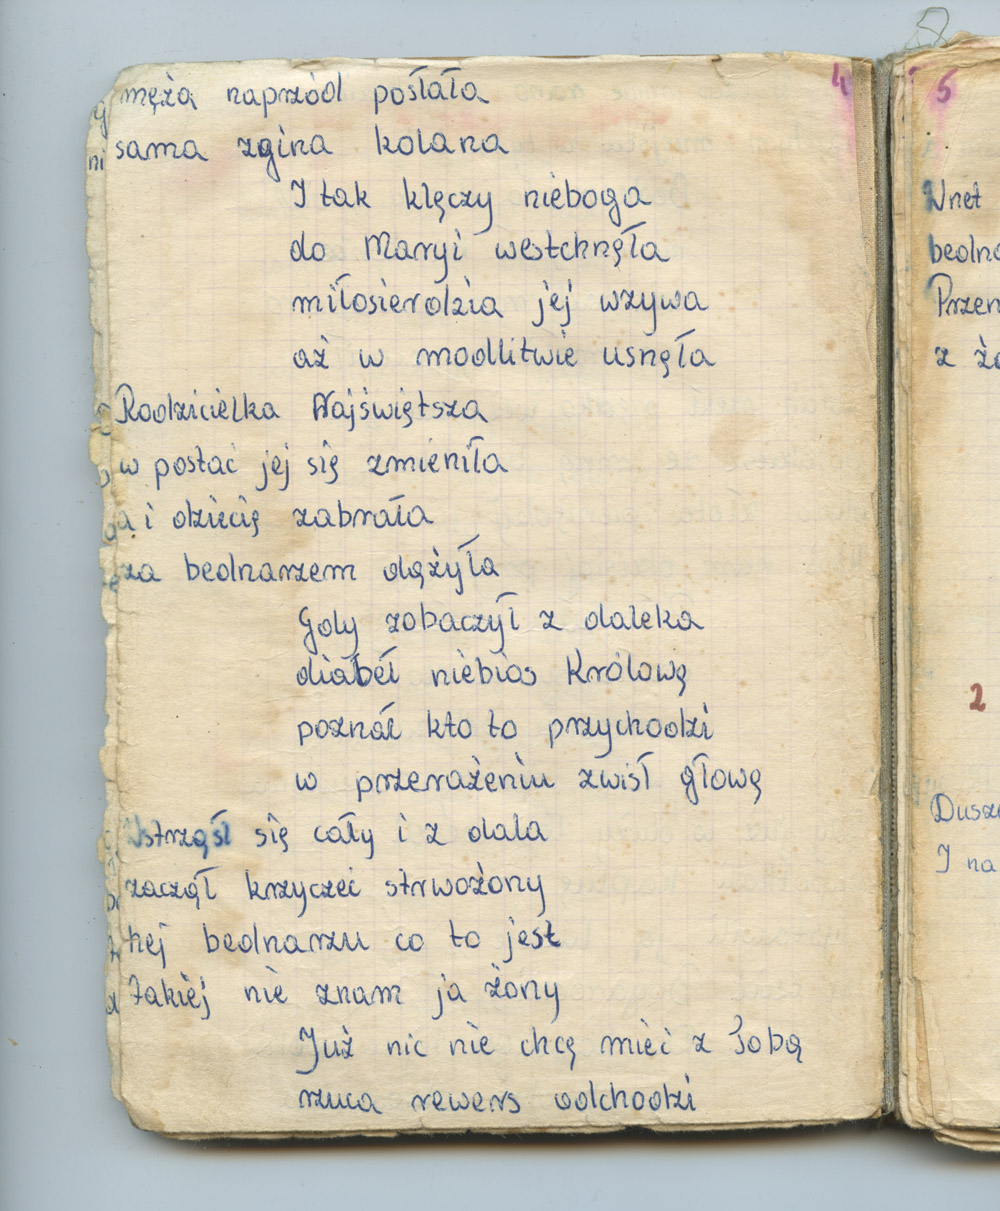 4
męża naprzód posłała
sama zgina kolana
I tak klęczy nieboga
do Maryi westchnęła
miłosierdzia jej wzywa
aż w modlitwie usnęła
Rodzicielka Najświętsza
w postać jej się zmieniła
a i dziecię zabrała
za bednarzem dążyła
Gdy zobaczył z daleka
diabeł niebios Królowę
poznał kto to przychodzi
w przerażeniu zwisł głowę
Wstrząsł się cały i z dala
zaczął krzyczeć strwożony
hej bednarzu co to jest
takiej nie znam ja żony
Już nic nie chcę mieć z Tobą
rzuca rewers odchodzi
5
Wnet
z
2
I na